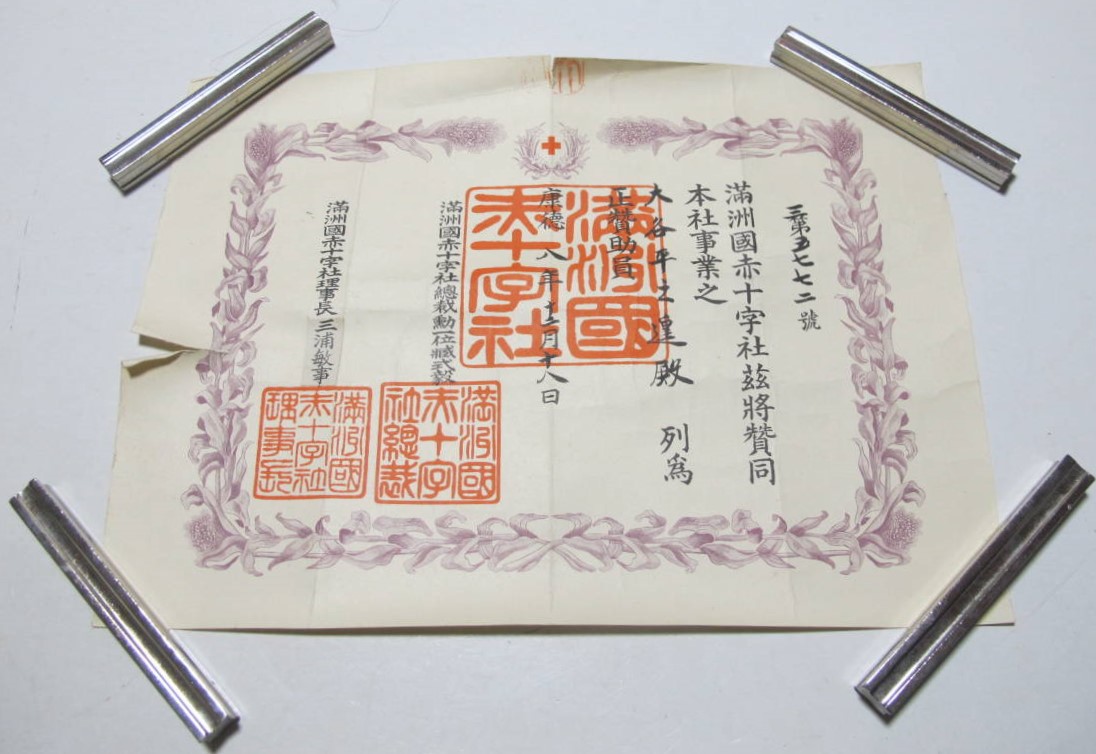 三第五七七二號
滿洲國赤十字社茲將贊同
本社事業之
大谷平之進殿 列為
正贊助員
康德八年十二月十八日
滿洲國赤十字社總裁勳一位臧式毅
滿洲國赤十字社理事長三浦敏事
滿洲國
赤十字社
滿洲國
赤十字
社總裁
滿洲國
赤十字社
理事長